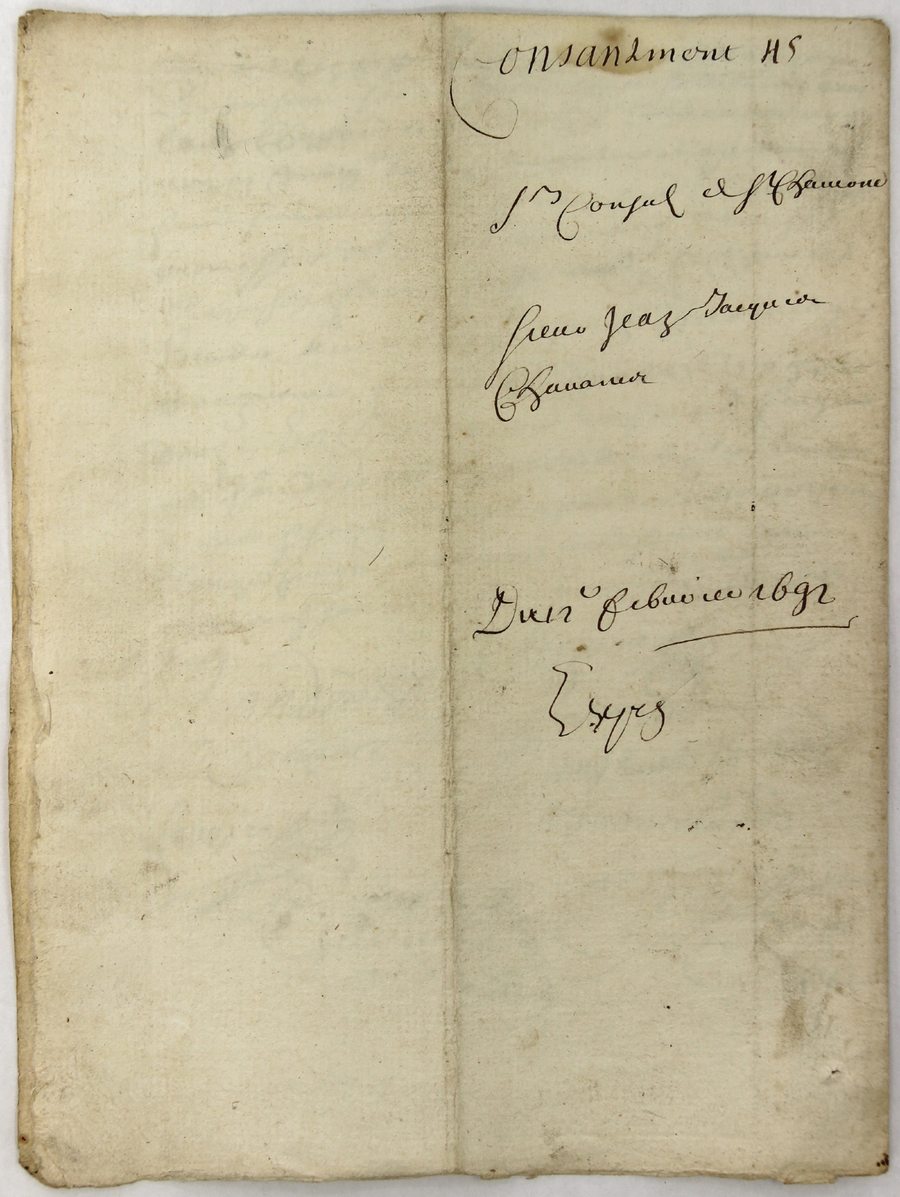 Consantment H5
Srs Consul de St Chamond
Sieur Jean Jacquier
Du 12e febvrier 1692
Expé